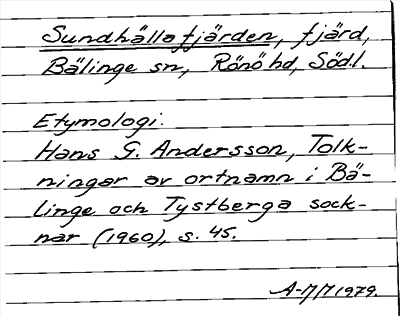 Sundhällafjärden, fjärd,
Bälinge sn, Rönö hd, Södl.
Etymologi:
Hans G. Andersson, Tolk-
ningar av ortnamn i Bä-
linge och Tystberga sock-
nar (1960), s. 45.
1979.